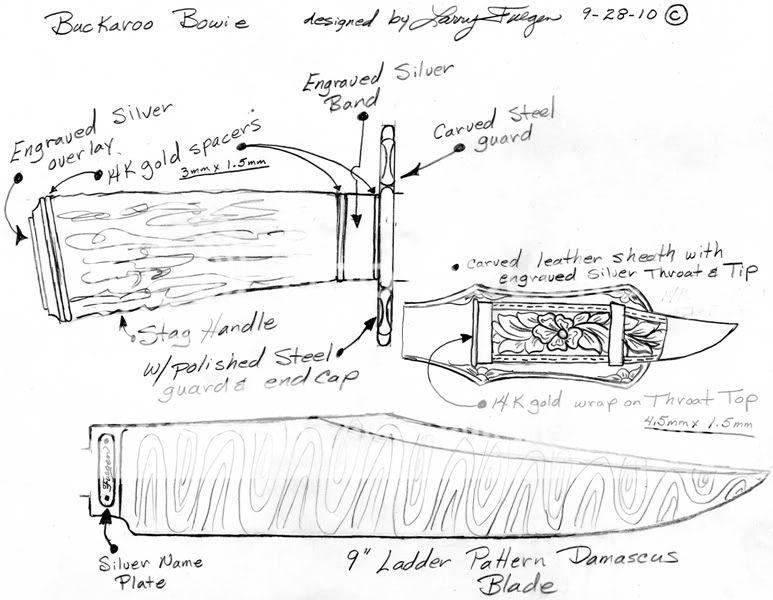 Buckaroo Bowie designed by Larry Fuegen 9-28-10 ©
Engraved Silver
Band
Engraved Silver
overlay
14K gold spacers
3mm x 1.5mm
Carved Steel
guard
Carved leather sheath with
engraved Silver Throat & Tip
Stag Handle
w/polished Steel
guard & end cap
14K gold wrap on Throat Top
4.5mm x 1.5mm
Fuegen
Silver Name
Plate
9" Ladder Pattern Damascus
Blade